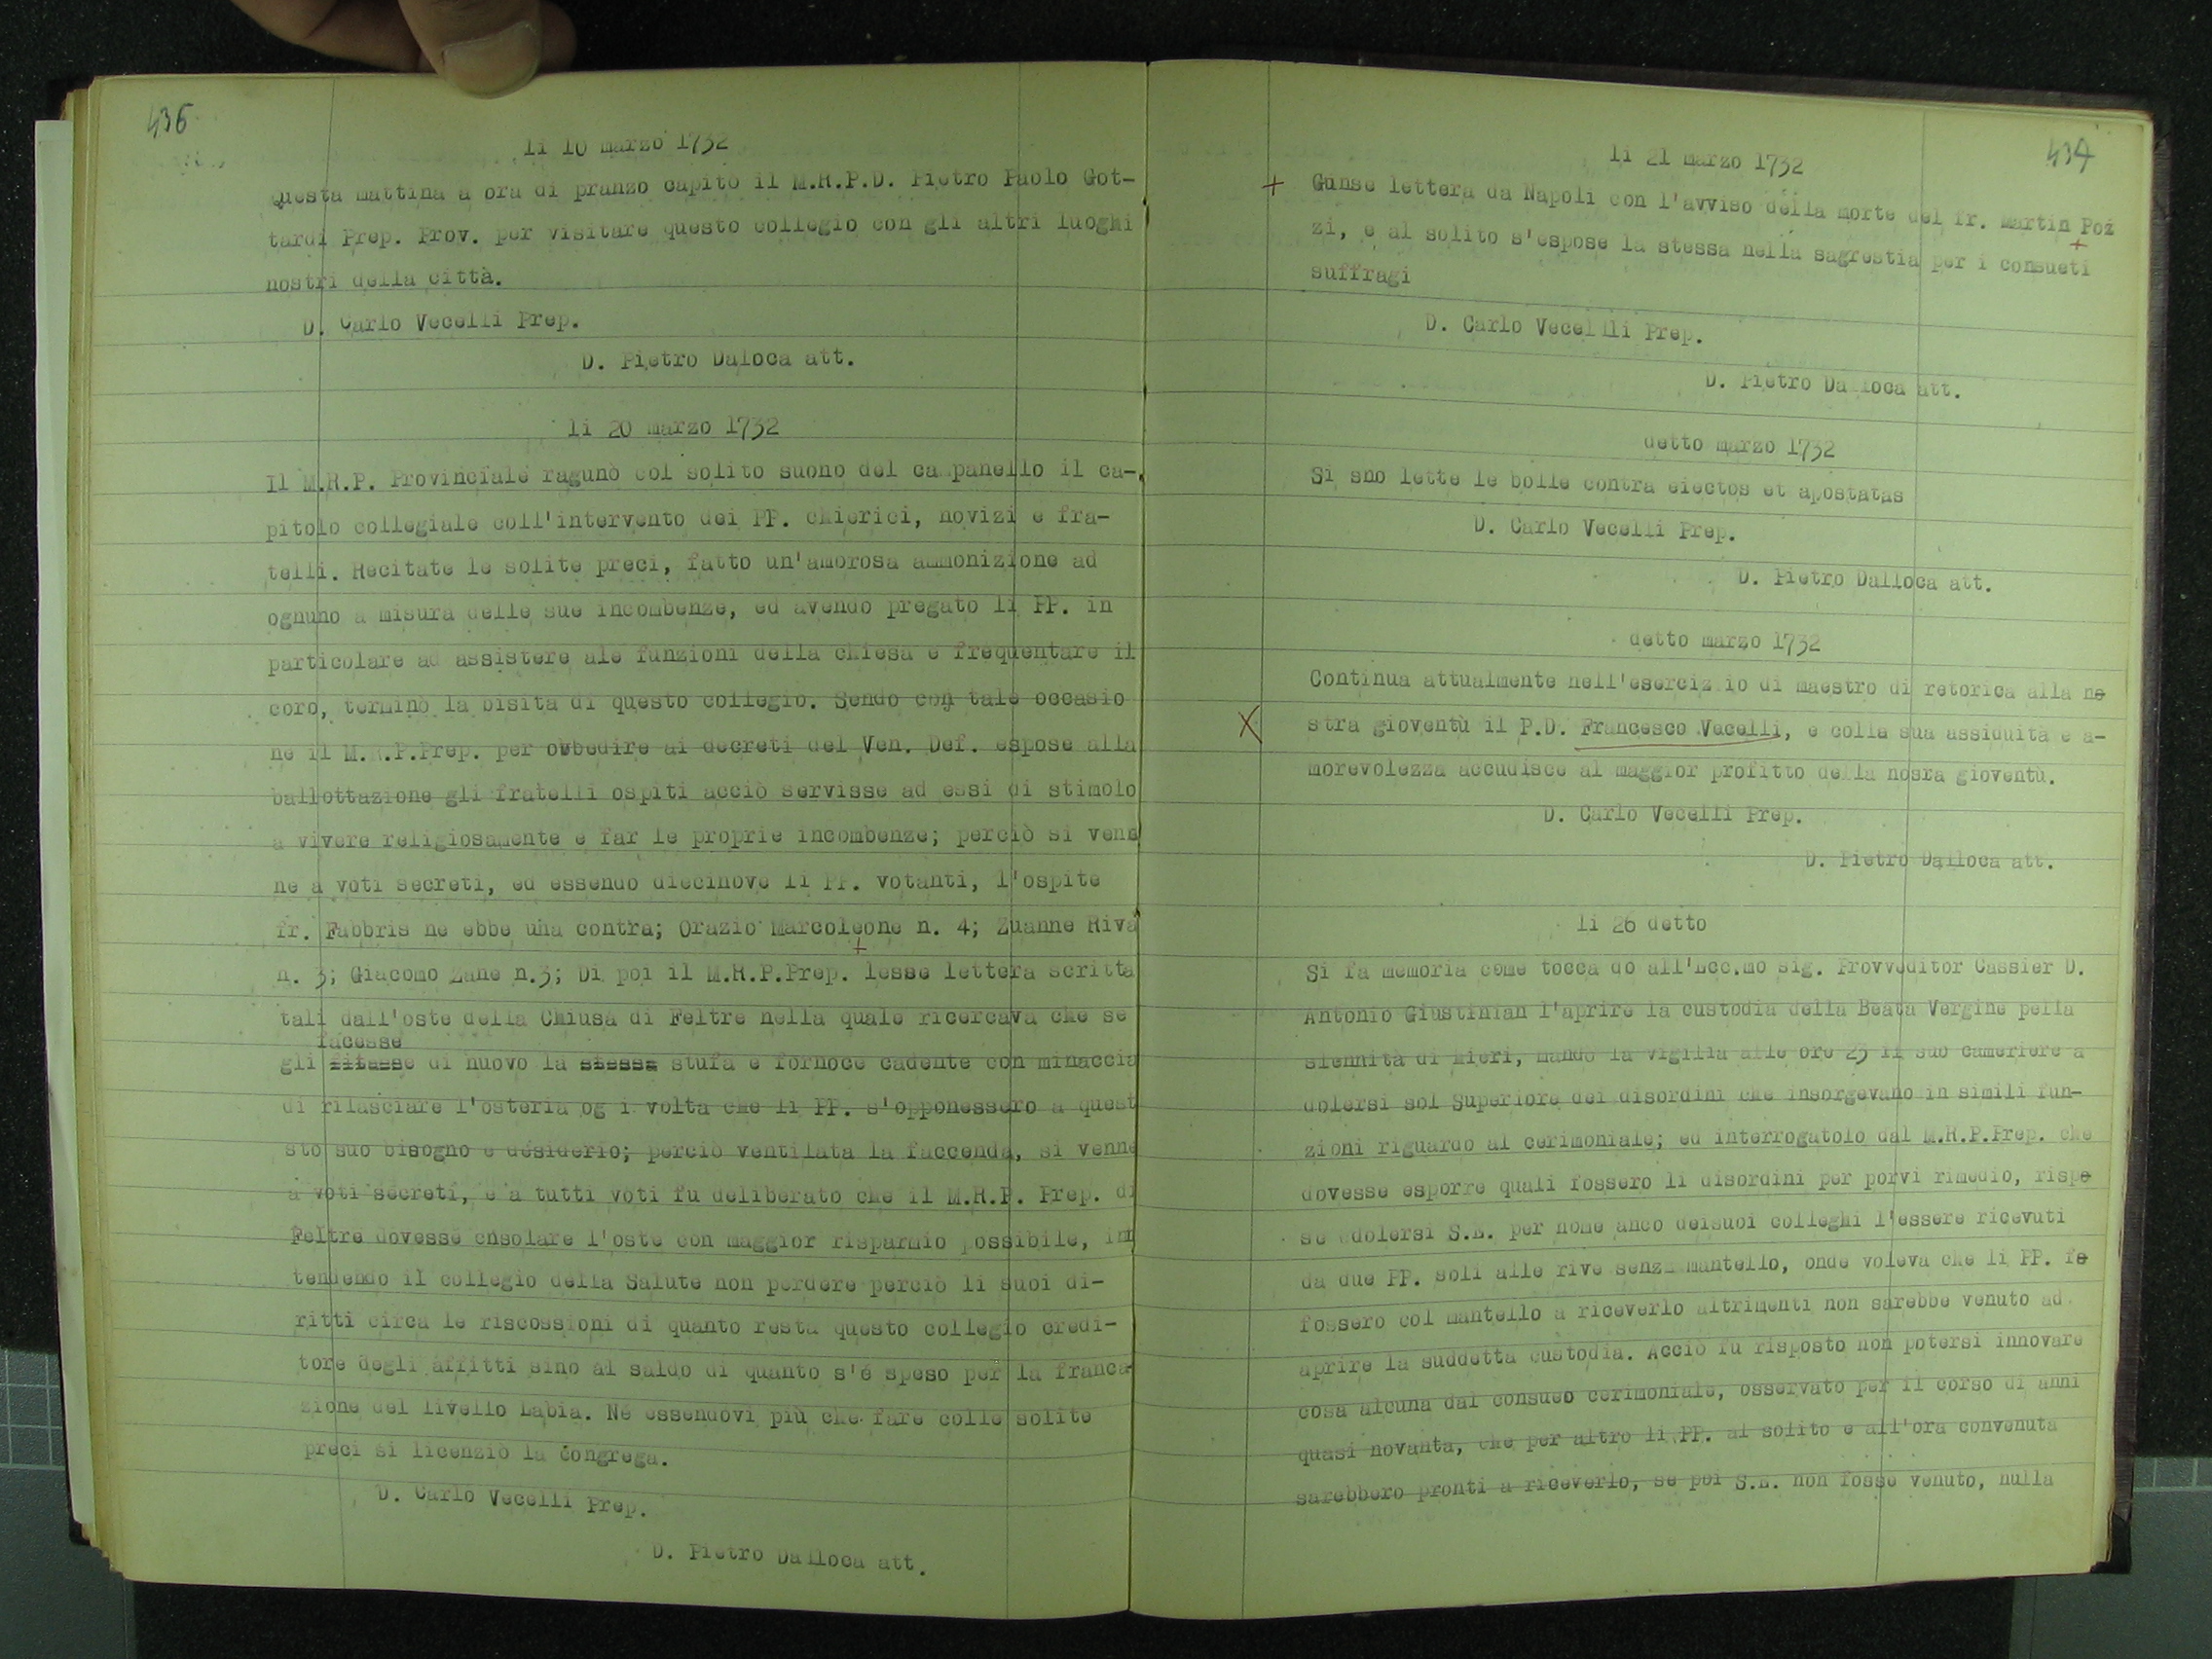 436
li 10 marzo 1732
Questa mattina a ora di pranzo capitò il M.R.P.D. Pietro Paolo Got-
tardi Prep. Prov. per visitare questo collegio con gli altri luoghi
nostri della città.
D. Carlo Vecelli Prep.
D. Pietro Daloca att.
li 20 marzo 1732
Il M.R.P. Provinciale ragunò col solito suono del campanello il ca-
pitolo collegiale coll'intervento dei PP. chierici, novizi e fra-
telli. Recitate le solite preci, fatto un'amorosa ammonizione ad
ognuno a misura delle sue incombenze, ed avendo pregato li PP. in
particolare ad assistere ale funzioni della chiesa e frequentare il
coro, terminò la bisita di questo collegio. Sendo con tale occasio
ne il M.R.P.Prep. per obbedire ai decreti del Ven. Def. espose alla
ballottazione gli fratelli ospiti acciò servisse ad essi di stimolo
a vivere religiosamente e far le proprie incombenze; perciò si venn
ne a voti secreti, ed essendo diecinove li PP. votanti, l'ospite
fr. Fabbris ne ebbe una contra; Orazio Marcoleone n. 4; Zuanne Riva
n. 3; Giacomo Zane n.3; Di poi il M.R.P.Prep. lesse lettera scritta
tali dall'oste della Chiusa di Feltre nella quale ricercava che se
facesse
gli fitasse di nuovo la stessa stufa e fornoce cadente con minaccia
di rilasciare l'osteria og i volta che li PP. s'opponessero a quest
sto suo bisogno e desiderio; perciò ventilata la faccenda, si venne
a voti secreti, e a tutti voti fu deliberato che il M.R.P. Prep. di
Feltre dovesse cnsolare l'oste con maggior risparmio possibile, inn
tendendo il collegio della Salute non perdere perciò li suoi di-
ritti circa le riscossioni di quanto resta questo collegio credi-
tore degli affitti sino al saldo di quanto s'é speso per la franca-
zione del livello Labia. Né essendovi più che fare colle solite
preci si licenziò la congrega.
D. Carlo Vecelli Prep.
D. Pietro Dalloca att.
434
li 21 marzo 1732
+ Gunse lettera da Napoli con l'avviso della morte del fr. Martin Poz
zi, e al solito s'espose la stessa nella sagrestia per i consueti
suffragi
D. Carlo Vecellli Prep.
D. Pietro Dalloca att.
detto marzo 1732
Si sno lette le bolle contra eiectos et apostatas
D. Carlo Vecelli Prep.
D. Pietro Dalloca att.
detto marzo 1732
Continua attualmente nell'eserciz io di maestro di retorica alla no
X stra gioventù il P.D. Francesco Vecelli, e colla sua assiduità e a-
morevolezza accudisce al maggior profitto della nosra gioventù.
D. Carlo Vecelli Prep.
D. Pietro Dalloca att.
li 26 detto
Si fa memoria come tocca do all'Ecc.mo sig. Provveditor Cassier D.
Antonio Giustinian l'aprire la custodia della Beata Vergine pella
slennità di hieri, mandò la vigilia alle ore 23 il suo cameriere a
dolersi sol Superiore dei disordini che insorgevano in simili fun-
zioni riguardo al cerimoniale; ed interrogatolo dal M.R.P.Prep. che
dovesse esporre quali fossero li disordini per porvi rimedio, rispo
se ddolersi S.E. per nome anco deisuoi colleghi l'essere ricevuti
da due PP. soli alle rive senza mantello, onde voleva che li PP. fo
fossero col mantello a riceverlo altrimenti non sarebbe venuto ad
aprire la suddetta custodia. Acciò fu risposto non potersi innovare
cosa alcuna dal consueo cerimoniale, osservato per il corso di anni
quasi novanta, che per altro li PP. al solito e all'ora convenuta
sarebbero pronti a riceverlo, se poi S.E. non fosse venuto, nulla